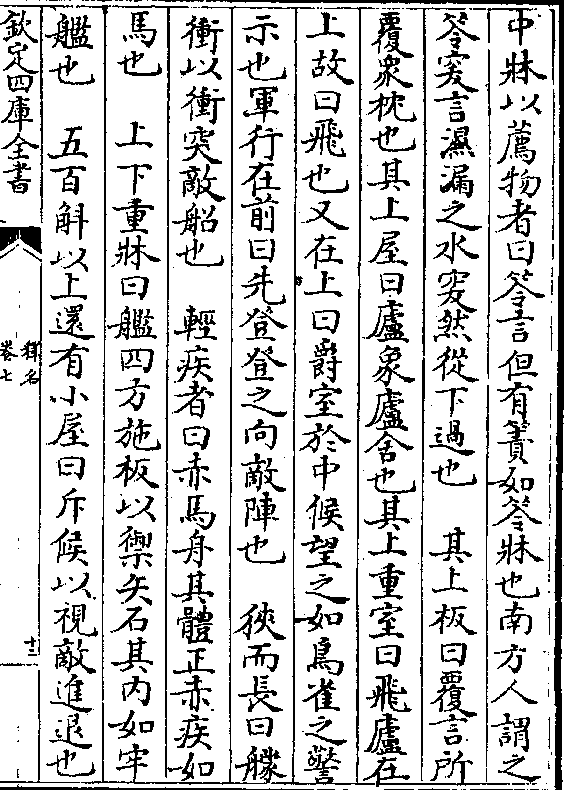 中牀以薦物者曰笭言但有簀如笭牀也南方人謂之
笭突言濕漏之水突然從下過也　其上板曰覆言所
覆衆枕也其上屋曰廬象廬舍也其上重室曰飛廬在
上故曰飛也又在上曰爵室於中候望之如鳥雀之警
示也軍行在前曰先登登之向敵陣也　狹而長曰艨
衝以衝突敵船也　輕疾者曰赤馬舟其體正赤疾如
馬也　上下重牀曰艦四方施板以禦矢石其内如牢
艦也　五百斛以上還有小屋曰斥候以視敵進退也
欽定四庫全書
釋名
卷七
十三